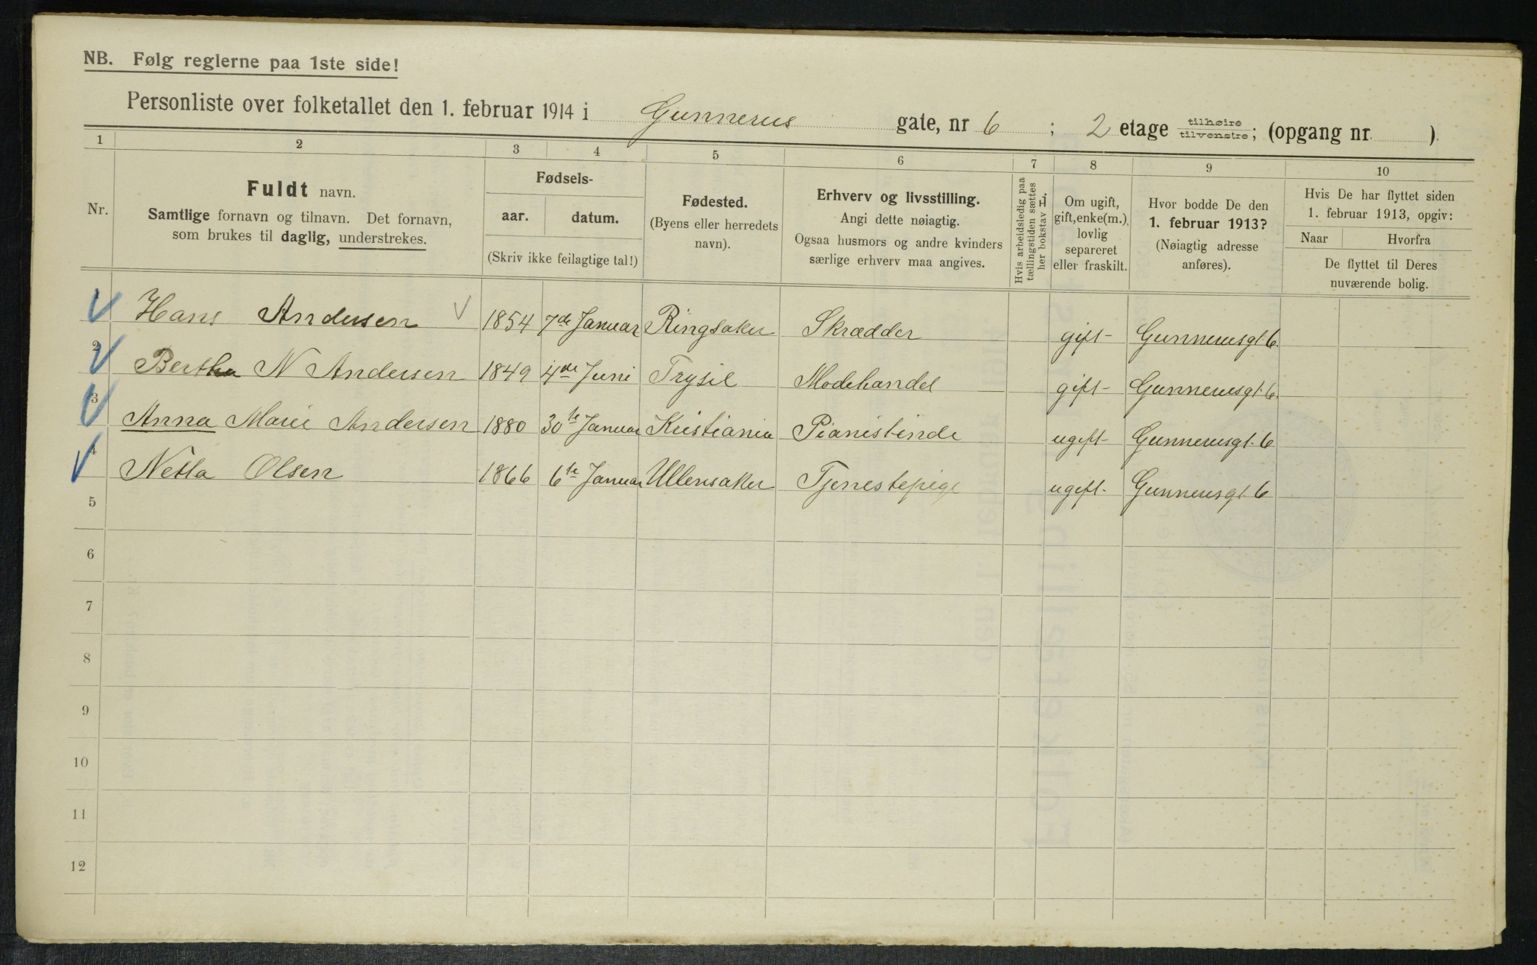 NB. Følg reglerne paa 1ste side!
Personliste over folketallet den 1. februar 1914 i Gunnerus gate, nr 6 ; 2 etage tilhøire tilvenstre; (opgang nr )
1 2 3 4 5 6 7 8 9 10
Nr.
Fuldt navn.
Samtlige fornavn og tilnavn. Det fornavn,
som brukes til daglig, understrekes.
Fødsels-
aar. datum.
(Skriv ikke feilagtige tal!)
Fødested.
(Byens eller herredets
navn).
Erhverv og livsstilling.
Angi dette nøiagtig.
Ogsaa husmors og andre kvinders
særlige erhverv maa angives.
Hvis arbeidsledig paa
tællingstiden sættes
her bokstav L.
Om ugift,
gift, enke(m.),
lovlig
separeret
eller fraskilt.
Hvor bodde De den
1. februar 1913?
(Nøiagtig adresse
anføres).
Hvis De har flyttet siden
1. februar 1913, opgiv:
Naar Hvorfra
De flyttet til Deres
nuværende bolig.
Hans Andersen 1854 7de Januar Ringsaker Skrædder gift Gunnerusgt 6.
2 Bertha N Andersen 1849 4de Juni Trysil Modehandel gift Gunnerusgt. 6.
3 Anna Marie Andersen 1880 30te Januar Kristiania Pianistinde ugift Gunnerusgt. 6
4 Netta Olsen 1866 6te Januar Ullensaker Tjenestepige ugift. Gunnerusgt. 6
5
6
7
8
9
10
11
12